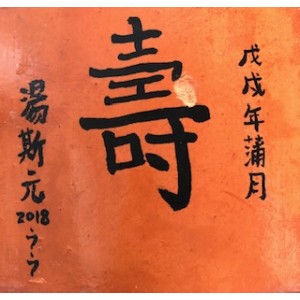 戊戌年蒲月
壽
湯斯元
2018